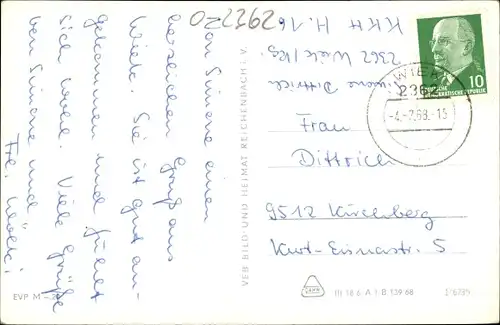 022262
Von Simone einen
herzlichen Gruß aus
Wiek. Sie ist gut an-
gekommen und fühlt
sich wohl. Viele Grüße
von Simone und
EVP M -,20
VEB BILD UND HEIMAT REICHENBACH I. V.
Simone Dittrich
2362 Wiek/Rg.
KKH H. 16
DEUTSCHE
DEMOKRATISCHE REPUBLIK
10
WIEK
2362
-4.-7.69.-15
Frau
Dittrich
9512 Kirchberg
Kurt-Eisnerstr. 5
III 18 6 A 1 B 139 68